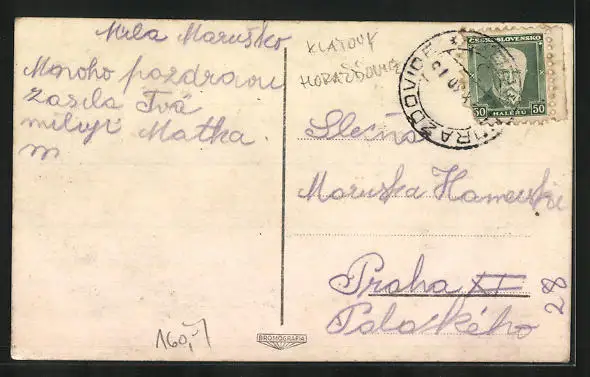 Milá Maruško
Mnoho pozdravu
zasílá Tvá
milují Matka.
m
KLATOVY
HORAŽĎOVICE
ČESKOSLOVENSKO
50 50
HALÉŘŮ
Slečna
Maruška
Praha XI
Palackého
28
160,-
BROMOGRAFIA